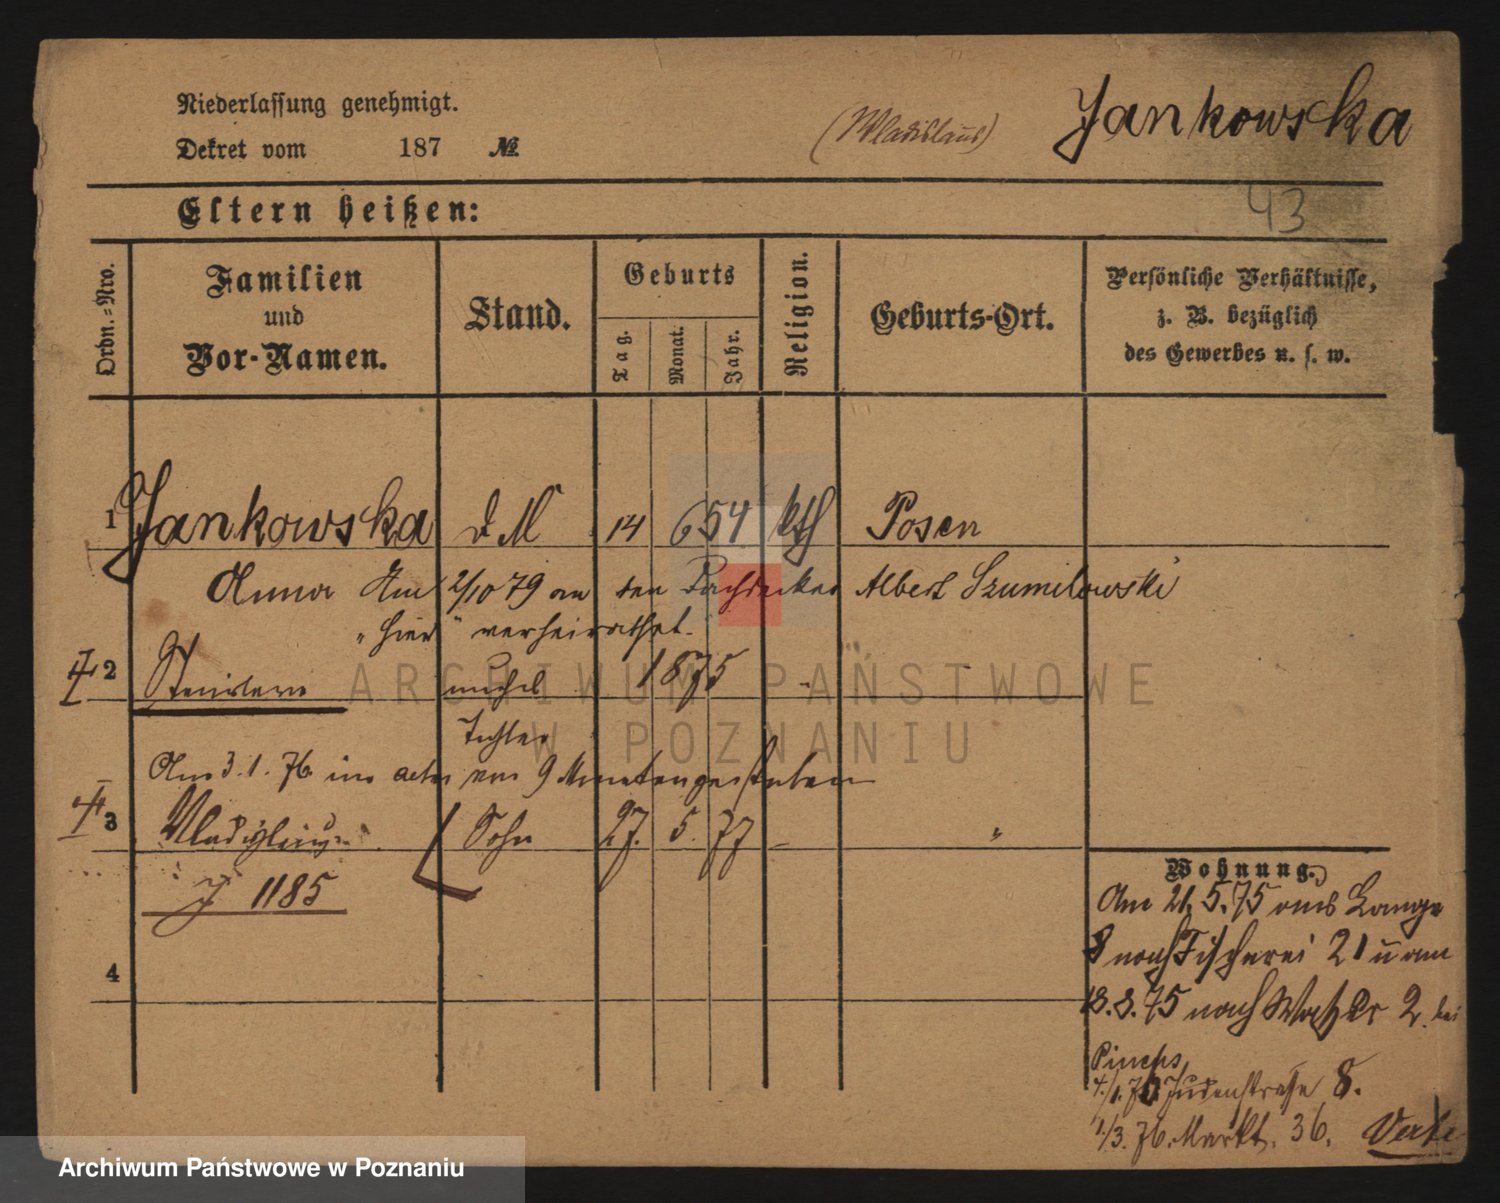 Niederlassung genehmigt.
Dekret vom 187 №
(Wladislaus) Jankowska
43
Eltern heißen:
Ordn.-Nro.
Familien
und
Vor-Namen.
Stand.
Geburts
Tag. Monat. Jahr.
Religion.
Geburts-Ort.
Persönliche Verhältnisse,
z. B. bezüglich
des Gewerbes u. s. w.
1 Jankowska d M 14 6 54 kth Posen
Anna Am 2/10 79 an den Dachdecker Albert Szumilowski
"hier" verheirathet.
2 1875
Tochter
Am 3. 1. 76 9 Monaten gestorben
3 Wladislaus Sohn 27. 5. 77 - "
J 1185
4
Wohnung.
Am 21. 5. 75 aus Lange
8 nach Fischerei 21 u am
13. 8. 75 nach 2. bei
4/1. 76 Judenstraße 8.
1/3. 76. Markt. 36.
ARCHIWUM PAŃSTWOWE
W POZNANIU
Archiwum Państwowe w Poznaniu